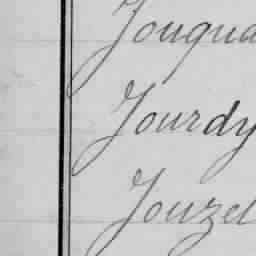 Jouqua
Jourdy
Jouzel